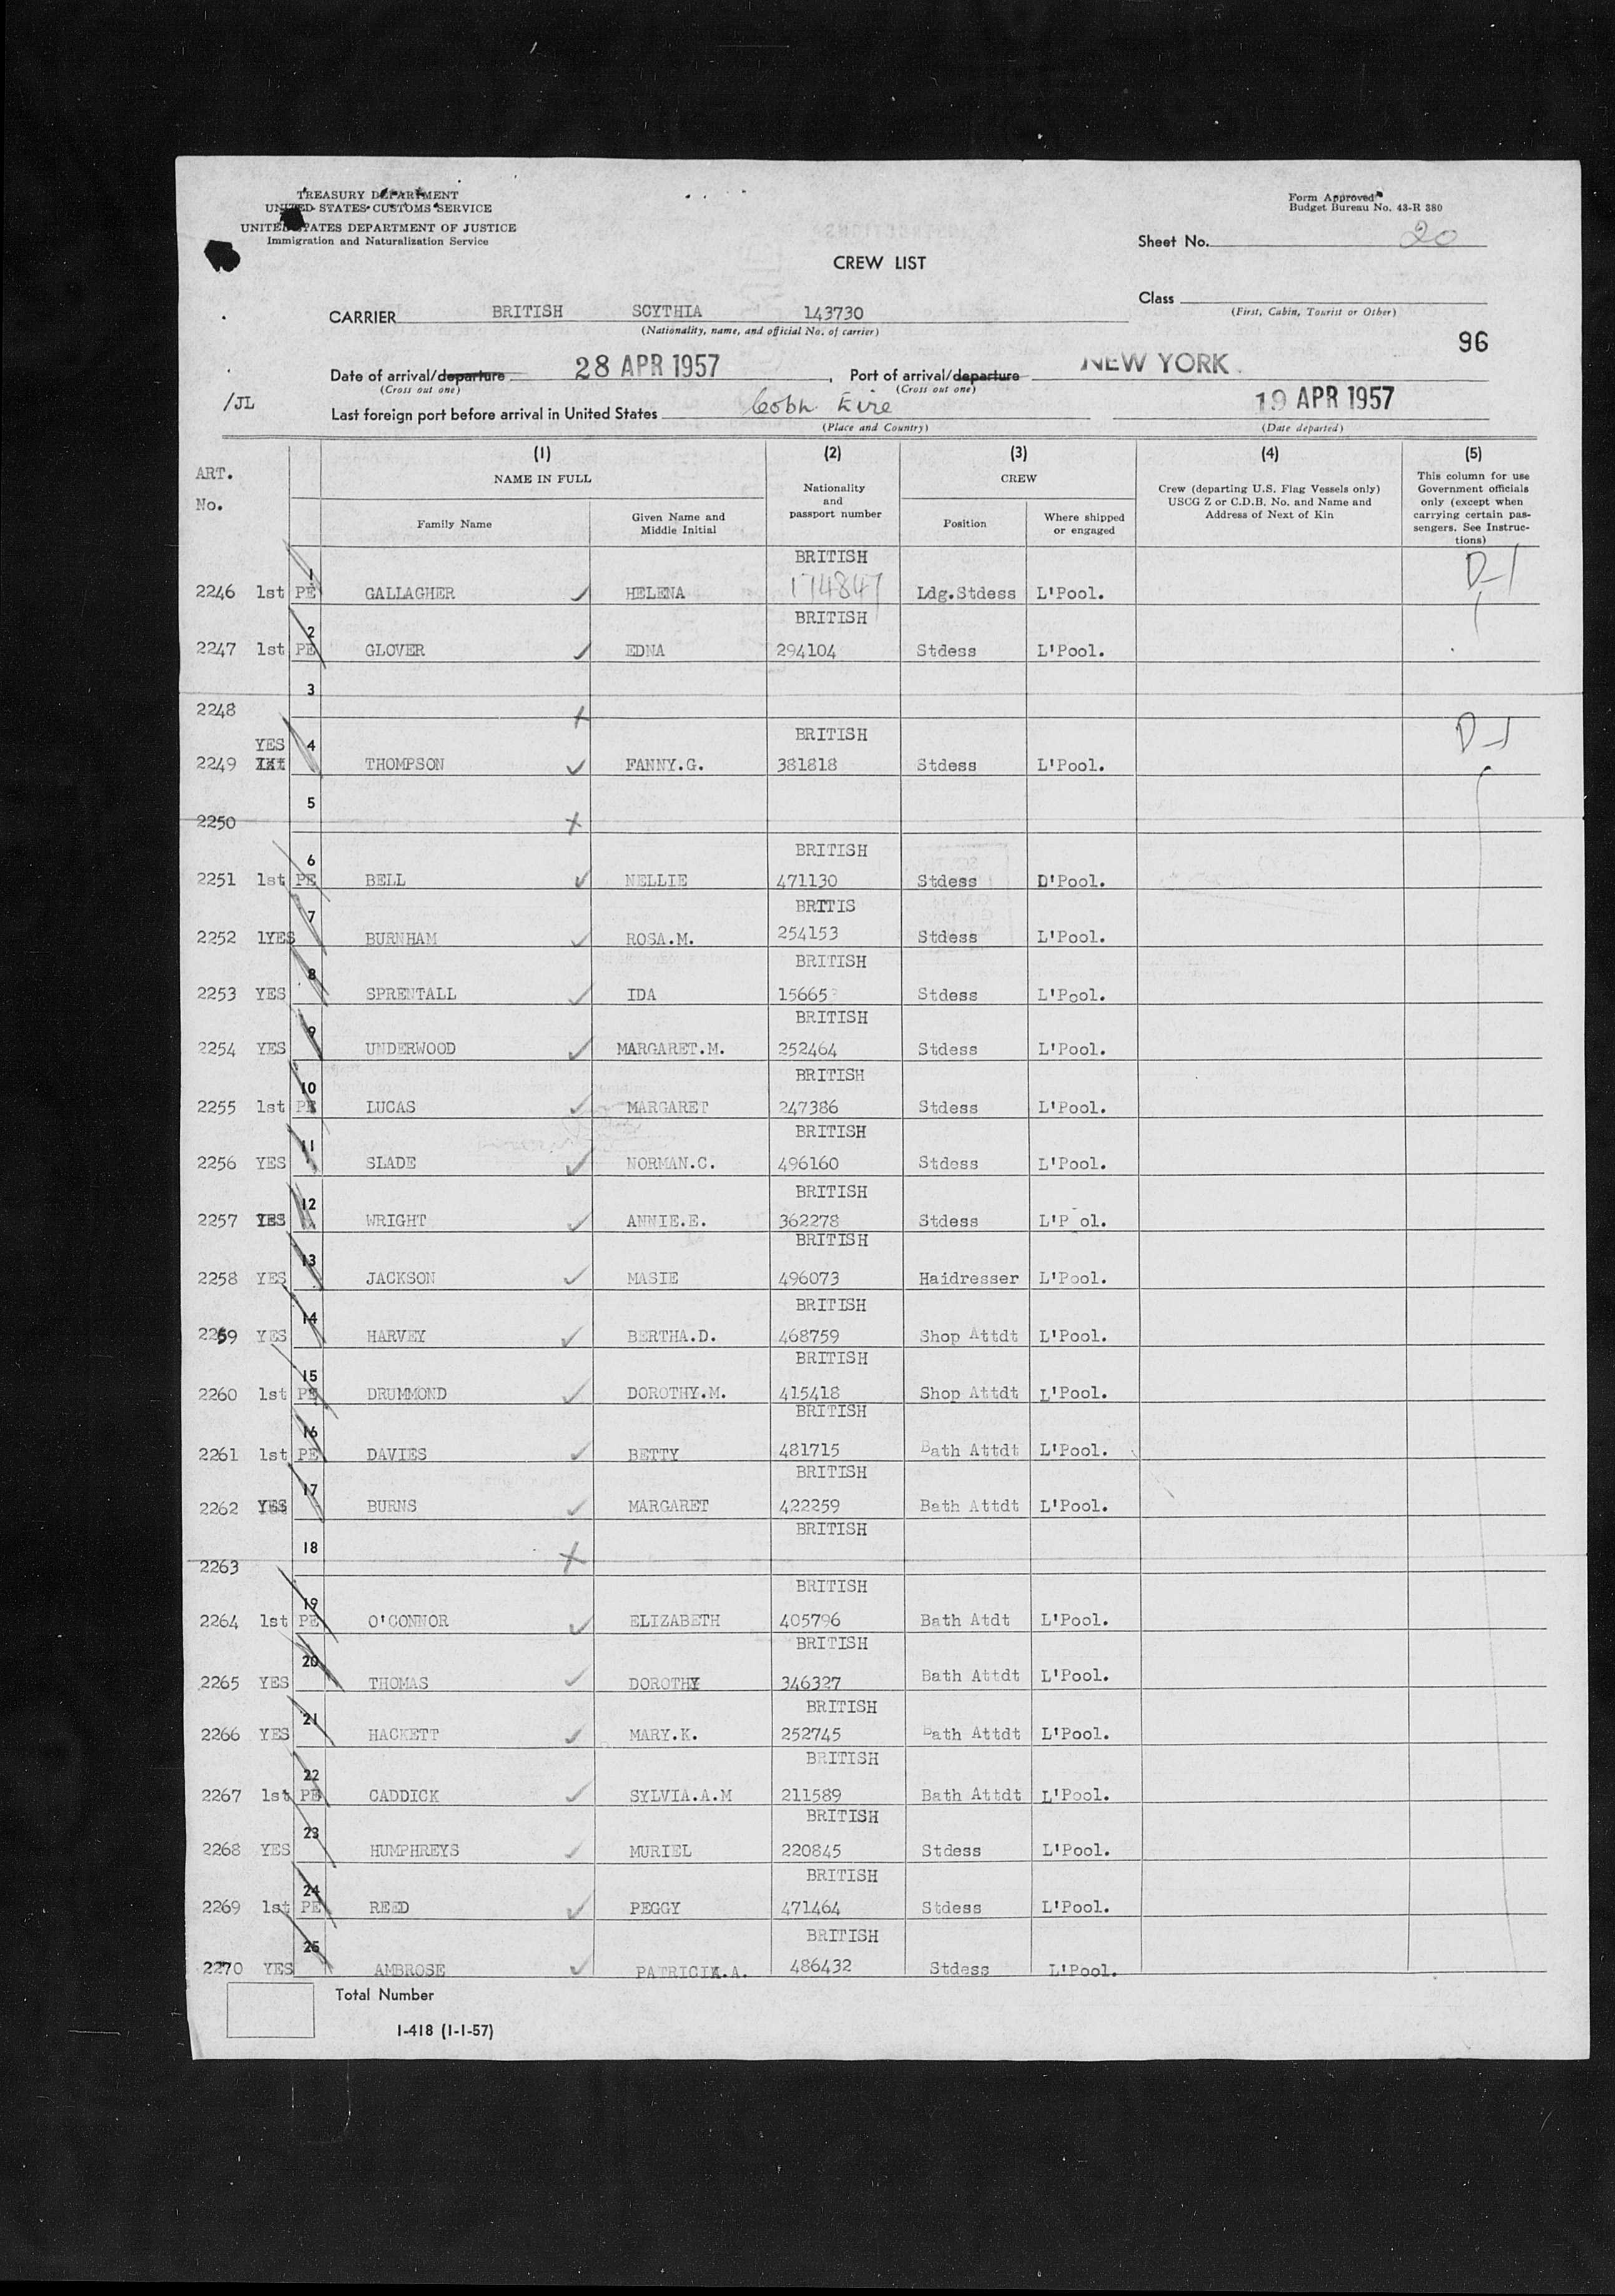 TREASURY DEPARTMENT
UNITED STATES CUSTOMS SERVICE
UNITED STATES DEPARTMENT OF JUSTICE
Immigration and Naturalization Service
Form Approved
Budget Bureau No. 43-R 380
Sheet No. 20
CREW LIST
Class
(First, Cabin, Tourist or Other)
CARRIER BRITISH SCYTHIA 143730
(Nationality, name, and official No. of carrier)
96
Date of arrival/departure 28 APR 1957, Port of arrival/departure NEW YORK
(Cross out one) (Cross out one)
/JL Last foreign port before arrival in United States Cobh Eire 19 APR 1957
(Place and Country) (Date departed)
ART. No. (1) NAME IN FULL (2) Nationality and passport number (3) CREW (4) Crew (departing U.S. Flag Vessels only) USCG Z or C.D.B. No. and Name and Address of Next of Kin (5) This column for use Government officials only (except when carrying certain passengers. See Instructions)
Family Name Given Name and Middle Initial Position Where shipped or engaged
1 BRITISH D-1
2246 1st PE GALLAGHER ✓ HELENA 174847 Ldg.Stdess L'Pool.
2 BRITISH
2247 1st PE GLOVER ✓ EDNA 294104 Stdess L'Pool.
3
2248 x
YES 4 BRITISH D-1
2249 THOMPSON ✓ FANNY.G. 381818 Stdess L'Pool.
5
2250 x
6 BRITISH
2251 1st PE BELL ✓ NELLIE 471130 Stdess D'Pool.
7 BRTTIS
2252 1YES BURNHAM ✓ ROSA.M. 254153 Stdess L'Pool.
8 BRITISH
2253 YES SPRENTALL ✓ IDA Stdess L'Pool.
9 BRITISH
2254 YES UNDERWOOD ✓ MARGARET.M. 252464 Stdess L'Pool.
10 BRITISH
2255 1st PE LUCAS ✓ MARGARET 247386 Stdess L'Pool.
11 BRITISH
2256 YES SLADE ✓ NORMAN.C. 496160 Stdess L'Pool.
12 BRITISH
2257 YES WRIGHT ✓ ANNIE.E. 362278 Stdess L'P ol.
13 BRITISH
2258 YES JACKSON ✓ MASIE 496073 Haidresser L'Pool.
14 BRITISH
2259 YES HARVEY ✓ BERTHA.D. 468759 Shop Attdt L'Pool.
15 BRITISH
2260 1st PE DRUMMOND ✓ DOROTHY.M. 415418 Shop Attdt L'Pool.
16 BRITISH
2261 1st PE DAVIES ✓ BETTY 481715 Bath Attdt L'Pool.
17 BRITISH
2262 YES BURNS ✓ MARGARET 422259 Bath Attdt L'Pool.
18 BRITISH
2263 x
19 BRITISH
2264 1st PE O'CONNOR ✓ ELIZABETH 405796 Bath Atdt L'Pool.
20 BRITISH
2265 YES THOMAS ✓ DOROTHY 346327 Bath Attdt L'Pool.
21 BRITISH
2266 YES HACKETT ✓ MARY.K. 252745 Bath Attdt L'Pool.
22 BRITISH
2267 1st PE CADDICK ✓ SYLVIA.A.M 211589 Bath Attdt L'Pool.
23 BRITISH
2268 YES HUMPHREYS ✓ MURIEL 220845 Stdess L'Pool.
24 BRITISH
2269 1st PE REED ✓ PEGGY 471464 Stdess L'Pool.
25 BRITISH
2270 YES AMBROSE ✓ PATRICIA.A. 486432 Stdess L'Pool.
Total Number
I-418 (1-1-57)